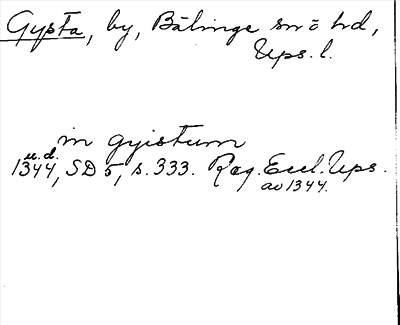 Gysta, by, Bälinge sn ö hd,
Ups. l.
in gyistum
u.d.
1344, SD 5, s. 333. Reg. Eccl. Ups.
av 1344.